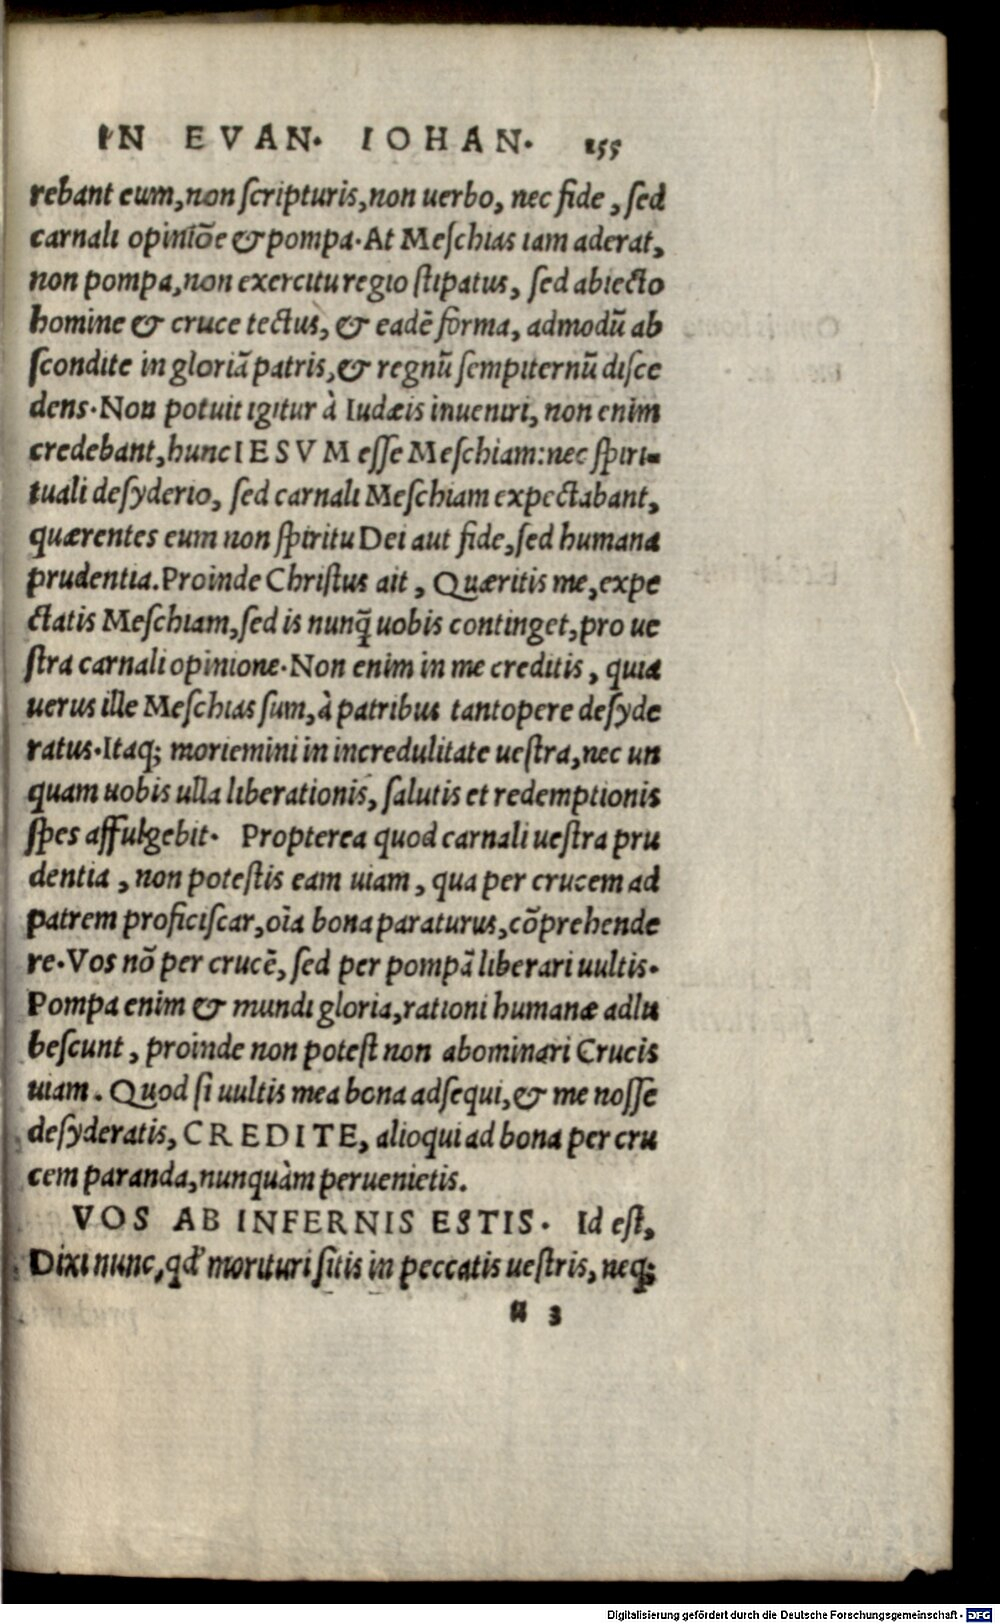 IN EVAN. IOHAN. 155
rebant eum, non scripturis, non uerbo, nec fide, sed
carnali opiniōe & pompa. At Meschias iam aderat,
non pompa, non exercitu regio stipatus, sed abiecto
homine & cruce tectus, & eadē forma, admodū ab
scondite in gloriā patris, & regnū sempiternū disce
dens. Non potuit igitur à Iudæis inueniri, non enim
credebant, hunc IESVM esse Meschiam: nec spiri-
tuali desyderio, sed carnali Meschiam expectabant,
quærentes eum non spiritu Dei aut fide, sed humana
prudentia. Proinde Christus ait, Quæritis me, expe
ctatis Meschiam, sed is nunq̄ uobis continget, pro ue
stra carnali opinione. Non enim in me creditis, quia
uerus ille Meschias sum, à patribus tantopere desyde
ratus. Itaq; moriemini in incredulitate uestra, nec un
quam uobis ulla liberationis, salutis et redemptionis
spes affulgebit. Propterea quod carnali uestra pru
dentia, non potestis eam uiam, qua per crucem ad
patrem proficiscar, oīa bona paraturus, cōprehende
re. Vos nō per crucē, sed per pompā liberari uultis.
Pompa enim & mundi gloria, rationi humanæ adlu
bescunt, proinde non potest non abominari Crucis
uiam. Quod si uultis mea bona adsequi, & me nosse
desyderatis, CREDITE, alioqui ad bona per cru
cem paranda, nunquàm peruenietis.
VOS AB INFERNIS ESTIS. Id est,
Dixi nunc, qd' morituri sitis in peccatis uestris, neq;
u 3
Digitalisierung gefördert durch die Deutsche Forschungsgemeinschaft - DFG